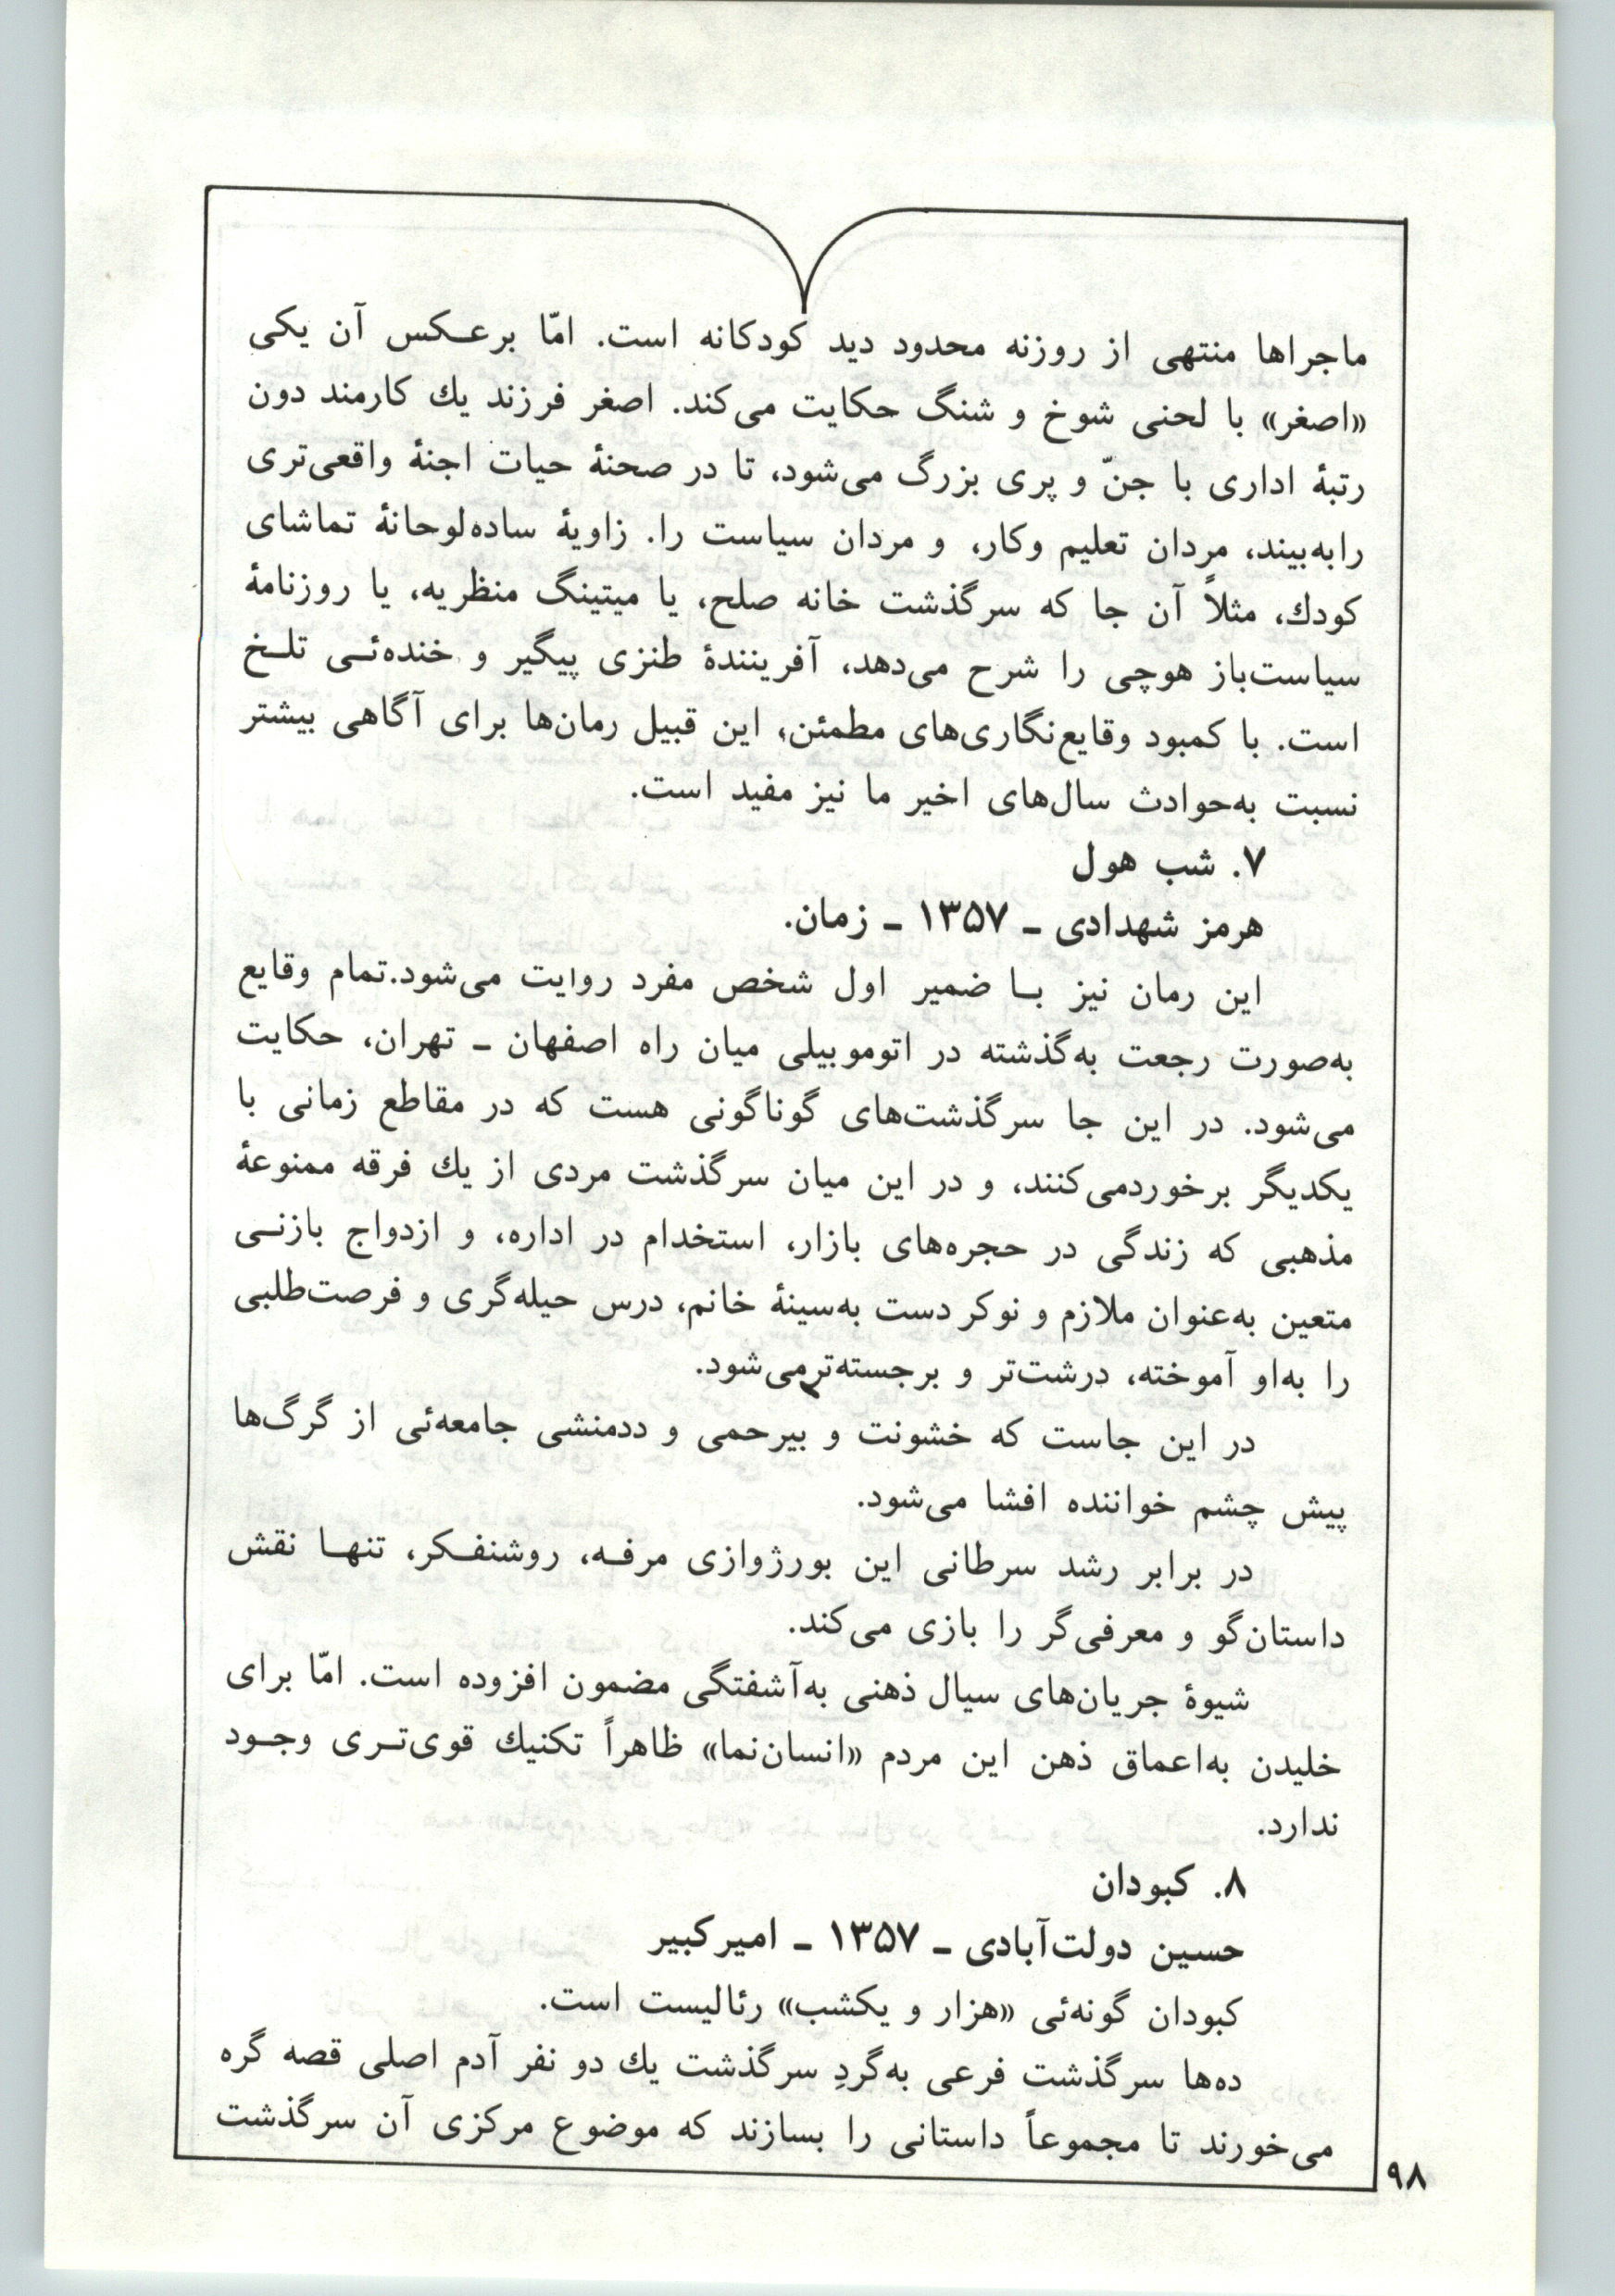 ماجراها منتهی از روزنه محدود دید کودکانه است. امّا برعـکس آن یکی
«اصغر» با لحنی شوخ و شنگ حکایت می‌کند. اصغر فرزند یك کارمند دون
رتبهٔ اداری با جنّ و پری بزرگ می‌شود، تا در صحنهٔ حیات اجنهٔ واقعی‌تری
رابه‌بیند، مردان تعلیم وکار، و مردان سیاست را. زاویهٔ ساده‌لوحانهٔ تماشای
کودك، مثلاً آن جا که سرگذشت خانه صلح، یا میتینگ منظریه، یا روزنامهٔ
سیاست‌باز هوچی را شرح می‌دهد، آفرینندهٔ طنزی پیگیر و خنده‌ئـی تلـخ
است. با کمبود وقایع‌نگاری‌های مطمئن، این قبیل رمان‌ها برای آگاهی بیشتر
نسبت به‌حوادث سال‌های اخیر ما نیز مفید است.
۷. شب هول
هرمز شهدادی ـ ۱۳۵۷ ـ زمان.
این رمان نیز بـا ضمیر اول شخص مفرد روایت می‌شود.تمام وقایع
به‌صورت رجعت به‌گذشته در اتوموبیلی میان راه اصفهان ـ تهران، حکایت
می‌شود. در این جا سرگذشت‌های گوناگونی هست که در مقاطع زمانی با
یکدیگر برخوردمی‌کنند، و در این میان سرگذشت مردی از یك فرقه ممنوعهٔ
مذهبی که زندگی در حجره‌های بازار، استخدام در اداره، و ازدواج بازنـی
متعین به‌عنوان ملازم و نوکر دست به‌سینهٔ خانم، درس حیله‌گری و فرصت‌طلبی
را به‌او آموخته، درشت‌تر و برجسته‌ترمی‌شود.
در این جاست که خشونت و بیرحمی و ددمنشی جامعه‌ئی از گرگ‌ها
پیش چشم خواننده افشا می‌شود.
در برابر رشد سرطانی این بورژوازی مرفـه، روشنفـکر، تنهـا نقش
داستان‌گو و معرفی‌گر را بازی می‌کند.
شیوهٔ جریان‌های سیال ذهنی به‌آشفتگی مضمون افزوده است. امّا برای
خلیدن به‌اعماق ذهن این مردم «انسان‌نما» ظاهراً تکنیك قوی‌تـری وجـود
ندارد.
۸. کبودان
حسین دولت‌آبادی ـ ۱۳۵۷ ـ امیرکبیر
کبودان گونه‌ئی «هزار و یکشب» رئالیست است.
ده‌ها سرگذشت فرعی به‌گردِ سرگذشت یك دو نفر آدم اصلی قصه گره
می‌خورند تا مجموعاً داستانی را بسازند که موضوع مرکزی آن سرگذشت
۹۸